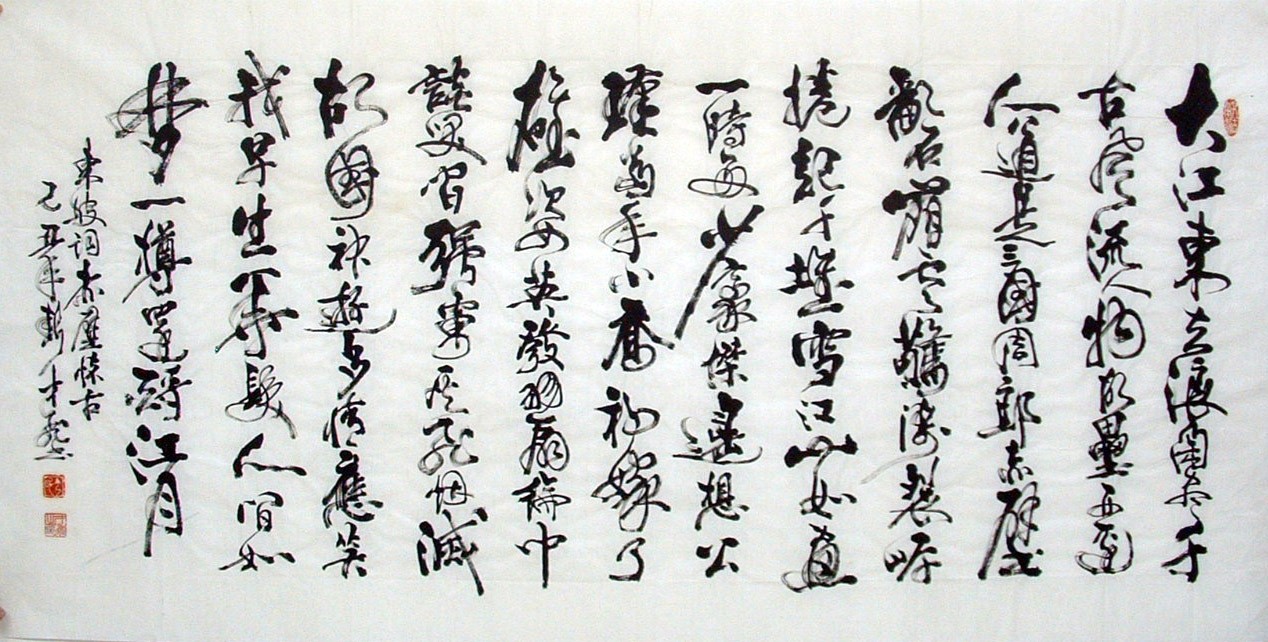 大江東去浪淘盡千
古風流人物故壘西邊
人道是三國周郎赤壁
亂石崩雲驚濤裂岸
捲起千堆雪江山如畫
一時多少豪傑遙想公
瑾當年小喬初嫁了
雄姿英發羽扇綸巾
談笑間強虜灰飛烟滅
故國神遊多情應笑
我早生華髮人間如
夢一樽還酹江月
東坡词赤壁懷古
己丑年